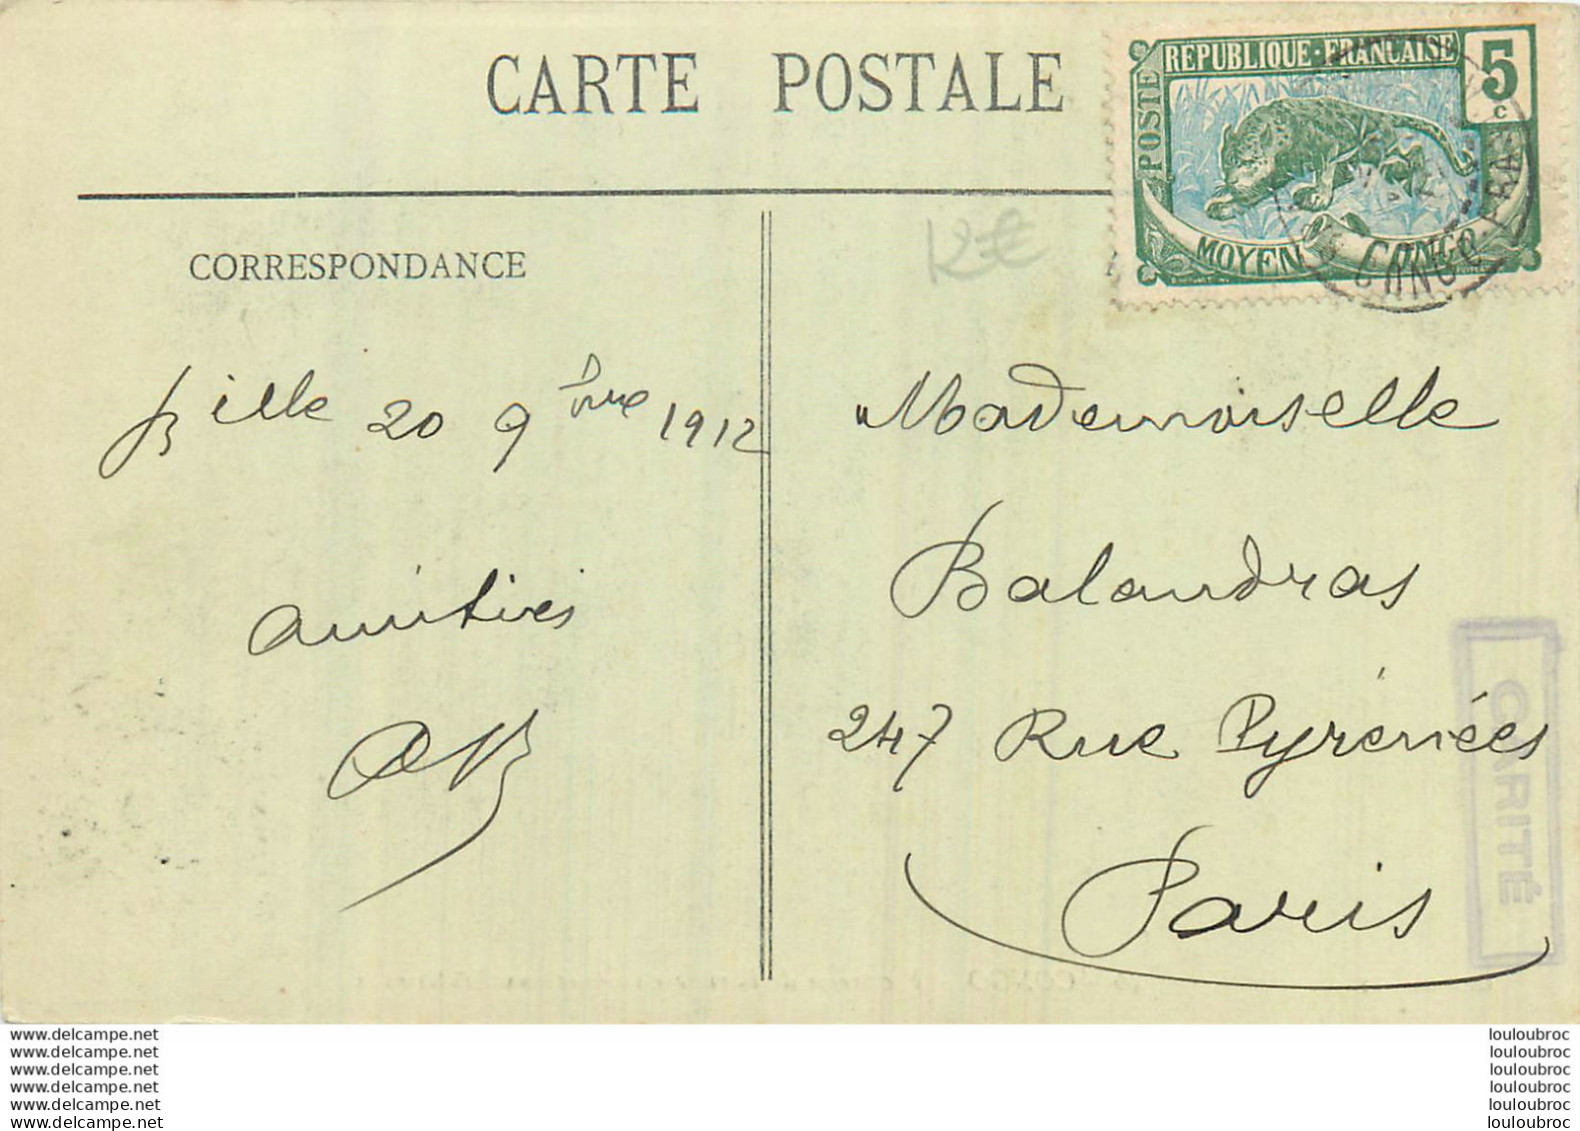 CARTE POSTALE
REPUBLIQUE·FRANÇAISE
5
c
POSTE
MOYEN CONGO
CORRESPONDANCE
12€
Bille 20 9bre 1912
Mademoiselle
amitiés
Balandras
247 Rue Pyrénées
Paris
CARITÉ
CONGO
www.delcampe.net
www.delcampe.net
www.delcampe.net
www.delcampe.net
www.delcampe.net
www.delcampe.net
louloubroc
louloubroc
louloubroc
louloubroc
louloubroc
louloubroc